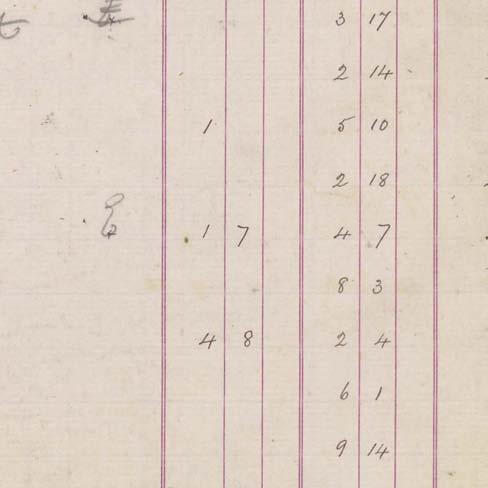 3 17
2 14
1 5 10
2 18
1 7 4 7
8 3
4 8 2 4
6 1
9 14